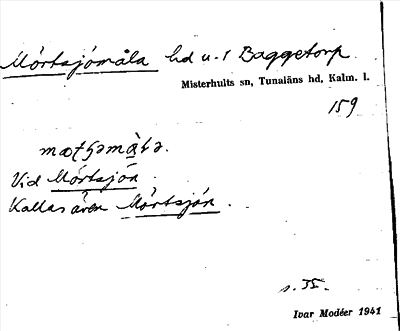 Mörtsjömåla hd u. f Baggetorp
Misterhults sn, Tunaläns hd, Kalm. l.
159
Vid Mörtsjön.
Kallas även Mörtsjön.
s. II.
Ivar Modéer 1941